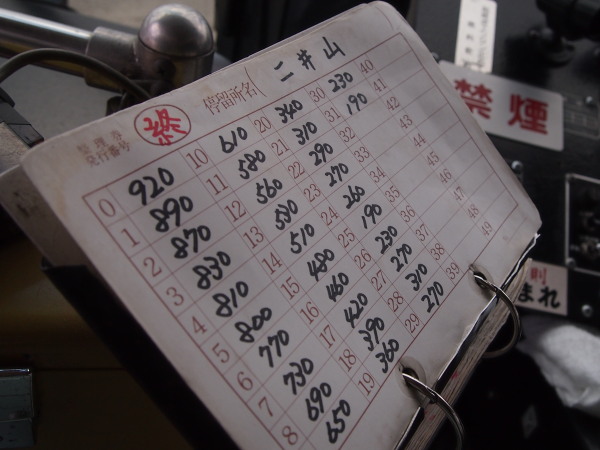 禁煙
整理券
発行番号
終
停留所名(
二井山
0 920 10 610 20 340 30 230 40
1 890 11 580 21 310 31 190 41
2 870 12 560 22 290 32 42
3 830 13 530 23 270 33 43
4 810 14 510 24 260 34 44
5 800 15 480 25 190 35 45
6 770 16 460 26 230 36 46
7 730 17 420 27 270 37 47
8 690 18 390 28 310 38 48
650 19 360 29 270 39 49
まれ